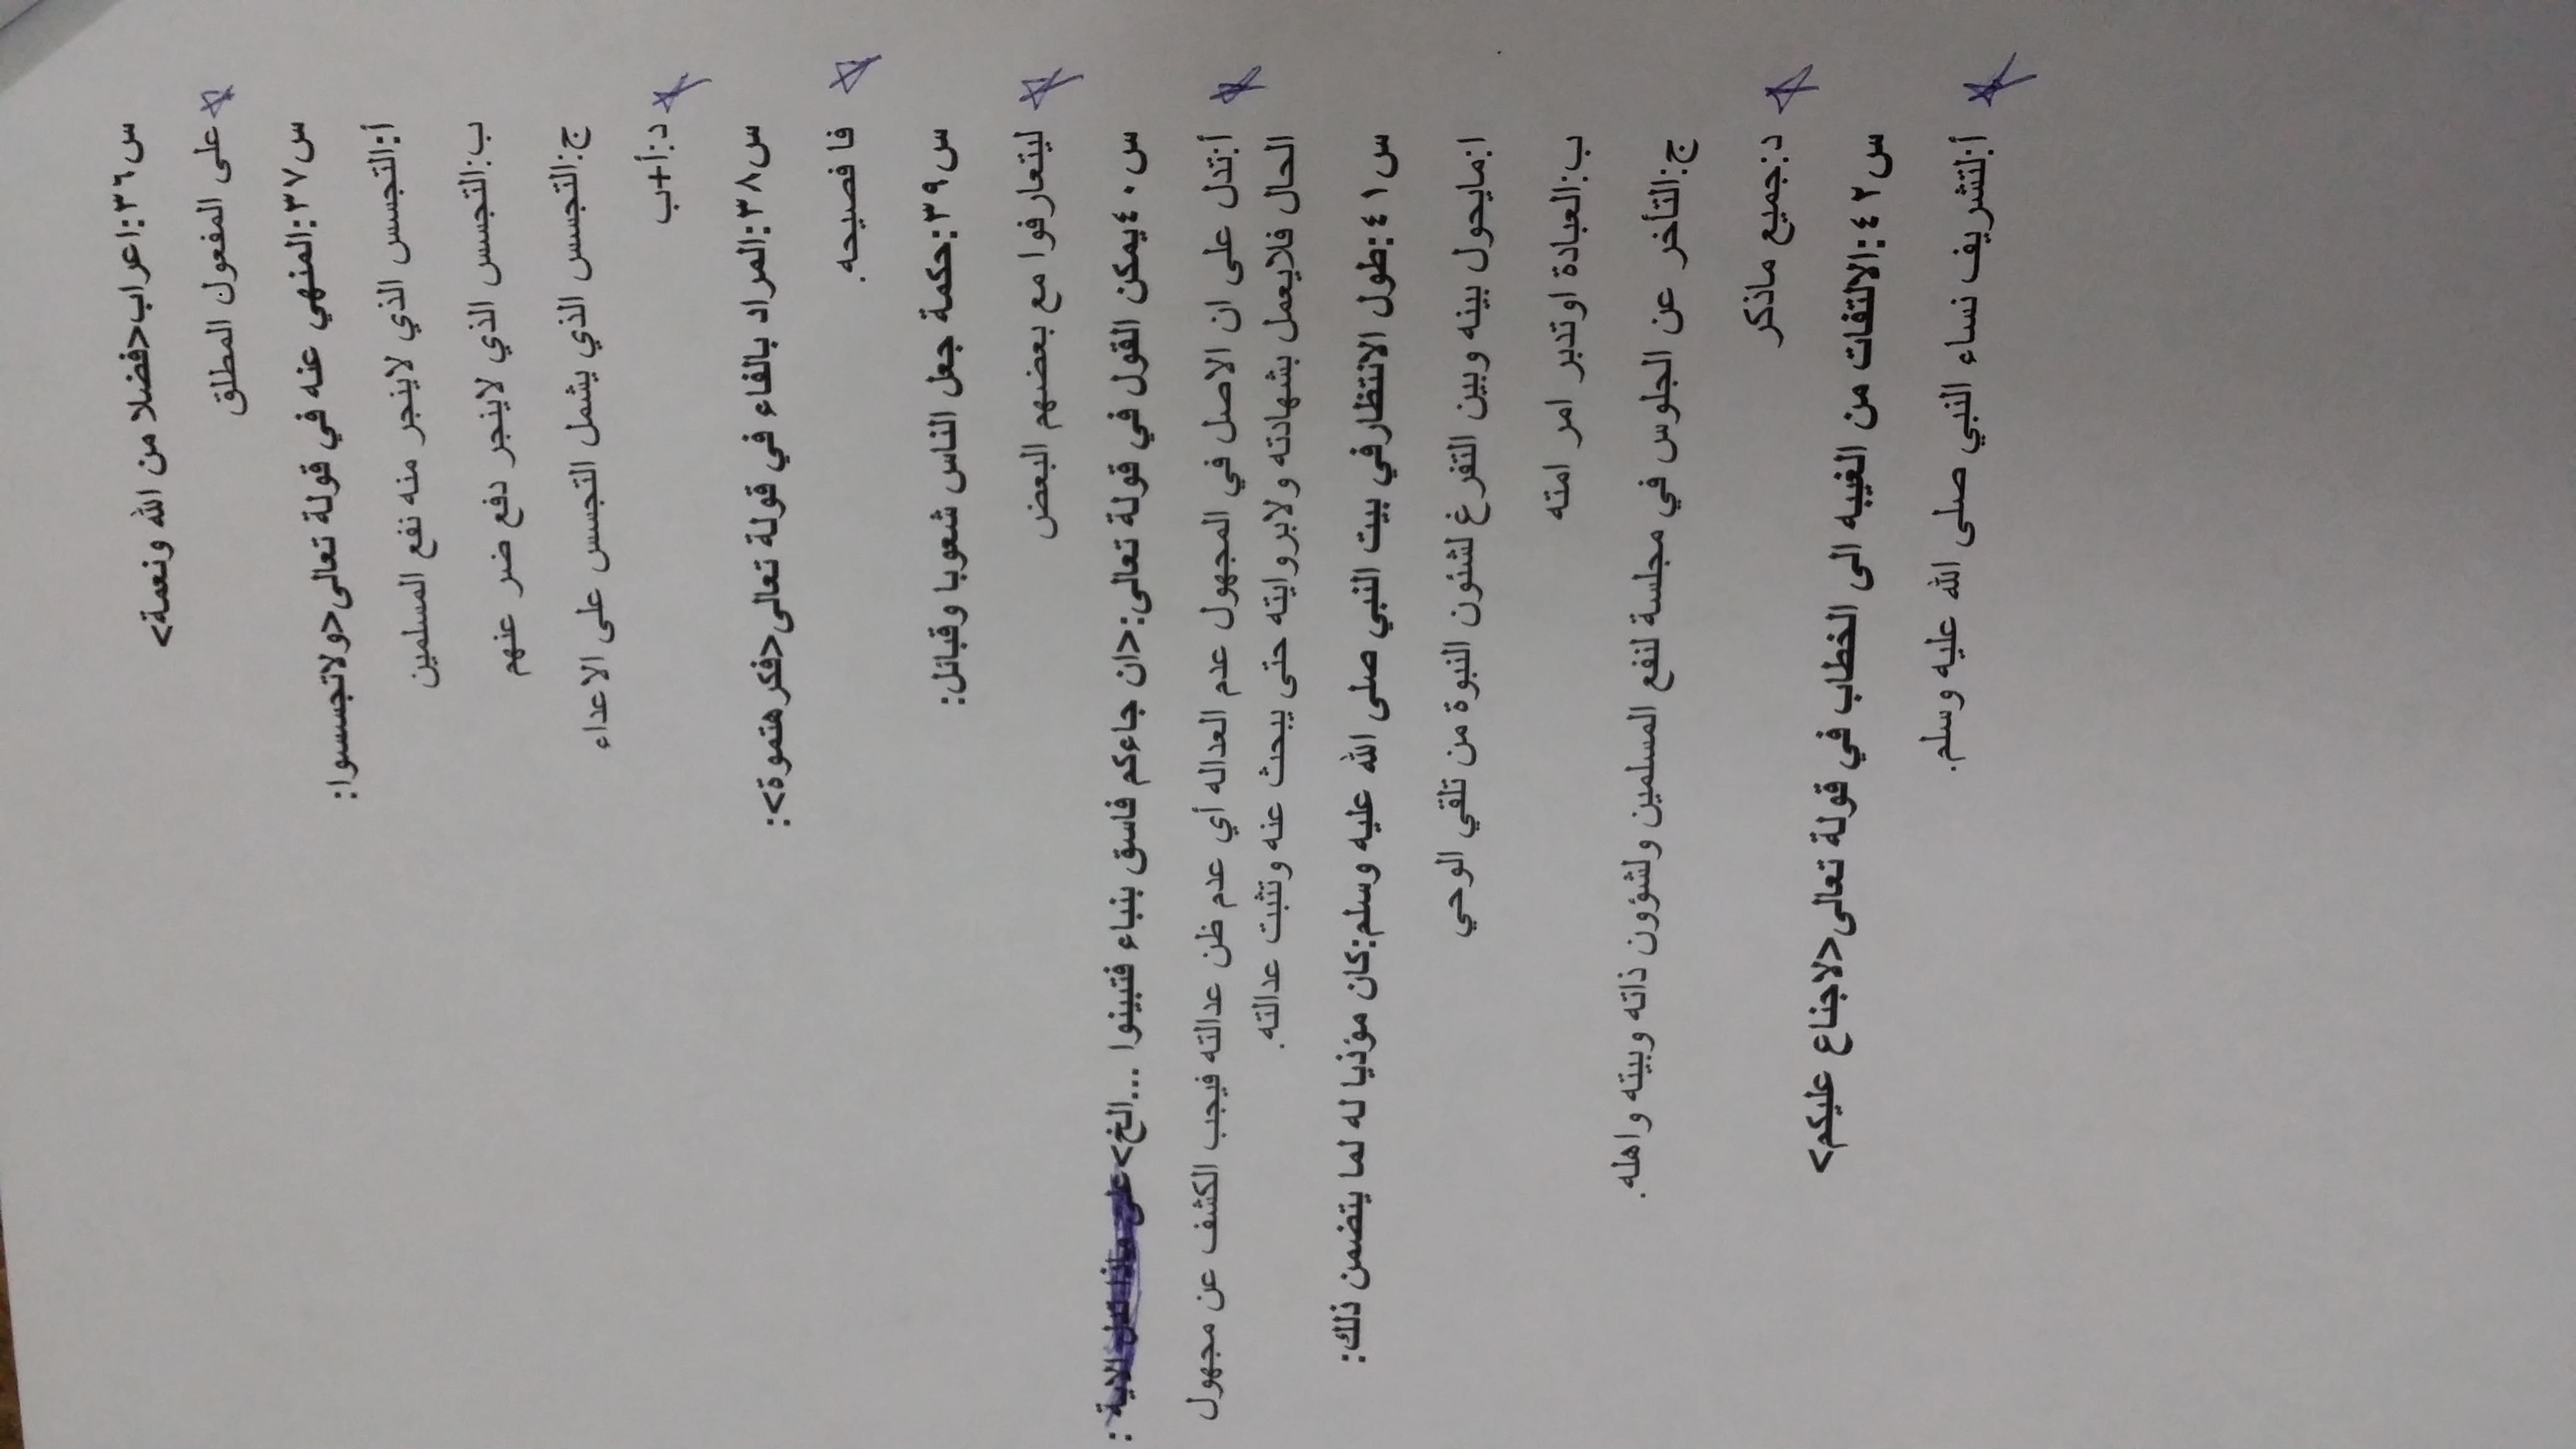 س٣٦:اعراب<فضلا من الله ونعمة>
على المفعول المطلق
س٣٧:المنهي عنه في قولة تعالى<ولاتجسسوا:
أ:التجسس الذي لاينجر منه نفع المسلمين
ب:التجسس الذي لاينجر دفع ضر عنهم
ج:التجسس الذي يشمل التجسس على الاعداء
د:أ+ب
س٣٨:المراد بالفاء في قولة تعالى<فكرهتموة>:
فا فصيحه.
س٣٩:حكمة جعل الناس شعوبا وقبائل:
ليتعارفوا مع بعضهم البعض
س٤٠يمكن القول في قولة تعالى:<ان جاءكم فاسق بنباء فتبينوا ...الخ>على ماذا تدل الاية :
أ:تدل على ان الاصل في المجهول عدم العداله أي عدم ظن عدالته فيجب الكشف عن مجهول
الحال فلايعمل بشهادته ولابروايته حتى يبحث عنه وتثبت عدالته.
س٤١:طول الانتظارفي بيت النبي صلى الله عليه وسلم:كان مؤذيا له لما يتضمن ذلك:
ا:مايحول بينه وبين التفرغ لشئون النبوة من تلقي الوحي
ب:العبادة اوتدبر امر امته
ج:التأخر عن الجلوس في مجلسة لنفع المسلمين ولشؤون ذاته وبيته واهله.
د:جميع ماذكر
س٤٢:الالتفات من الغيبه الى الخطاب في قولة تعالى<لاجناع عليكم>
أ:لتشريف نساء النبي صلى الله عليه وسلم.